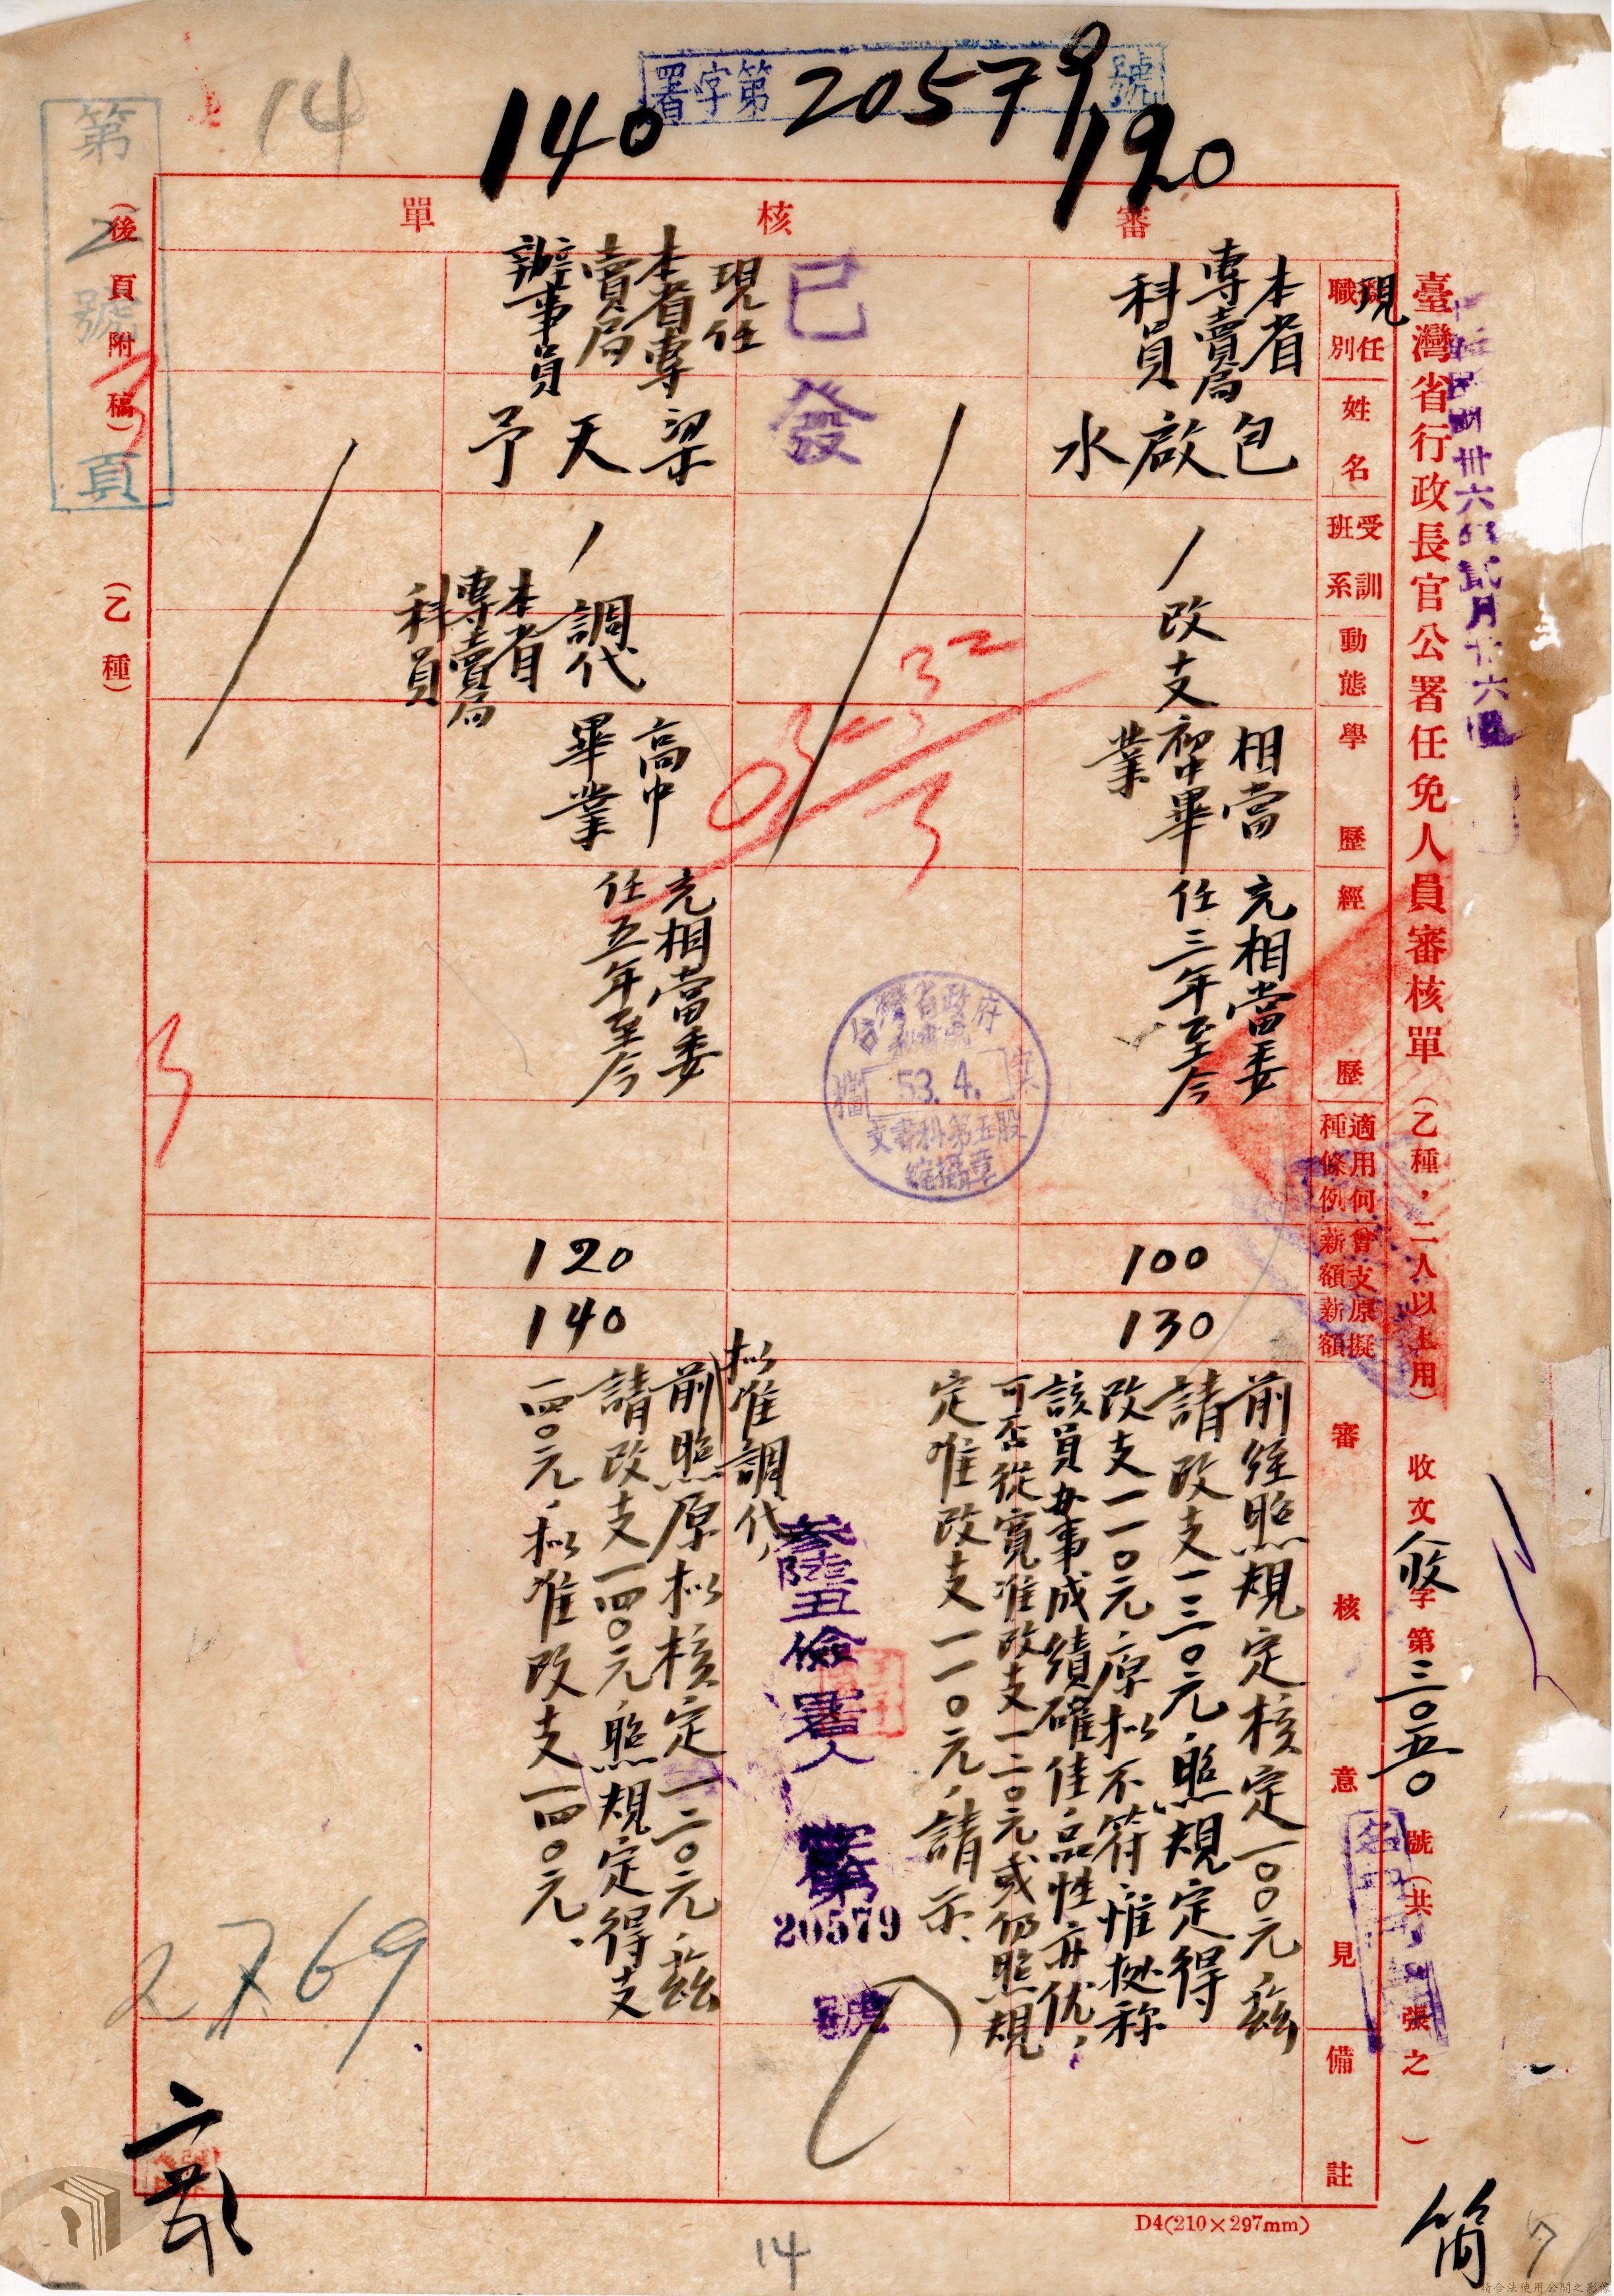 署字第 20579 號
140
120
14
第2號頁
審核單
臺灣省行政長官公署任免人員審核單(乙種,二人以上用)
收文 字第三〇五〇號(共 張之 )
現任
職別
姓名
受訓班系
動態
學歷
經歷
適用何種條例
曾支薪額
原擬薪額
審核意見
備註
本省
專賣局
科員
包啟水
改支
相當
初中畢
業
充相當委
任三年至今
100
130
前經照規定核定一〇〇元,茲
請改支一三〇元,照規定得
改支一一〇元,原拟不符,惟據称
該員女事成績確佳,品性亦优,
可否從寬准改支一二〇元或仍照規
定准改支一一〇元,請示、
已發
台灣省政府
秘書處
檔案
53.4.
文書科第五股
縮攝章
叁陸丑儉署人
第
20579
號
現任
本省專
賣局
辦事員
梁天予
調代
本省
專賣局
科員
高中
畢業
充相當委
任五年至今
120
140
拟准調代,
前照原拟核定一二〇元,茲
請改支一四〇元,照規定得支
一四〇元,拟准改支一四〇元、
(後頁附稿)
(乙種)
2769
D4(210×297mm)
14
簡